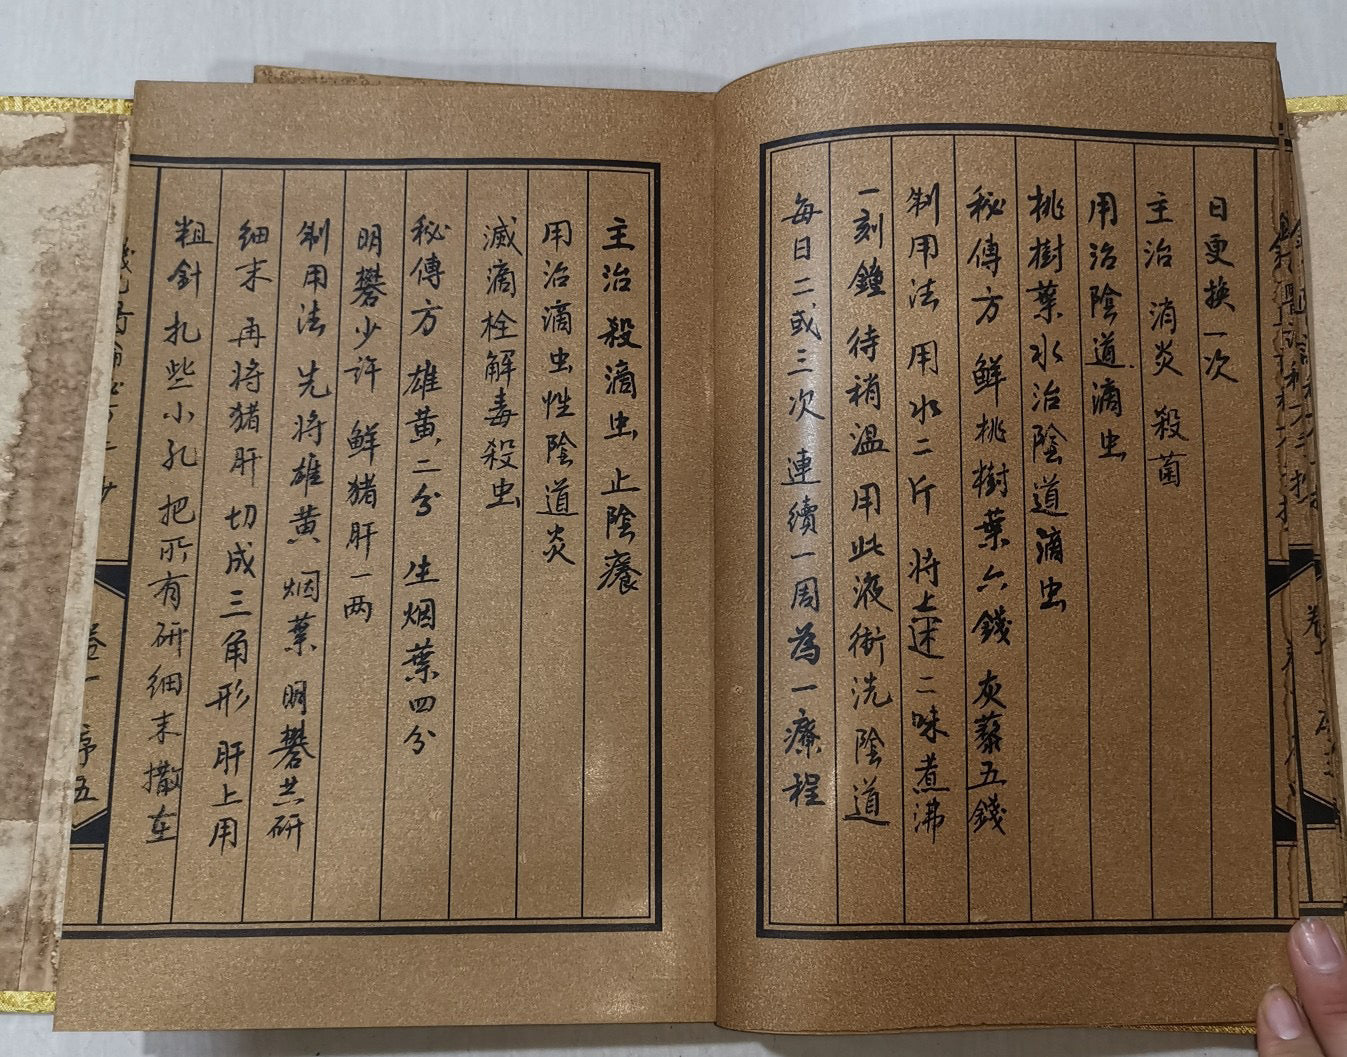 日更换一次
主治 消炎 殺菌
用治陰道滴虫
桃樹葉水治陰道滴虫
秘傳方 鮮桃樹葉六錢 灰藜五錢
制用法 用水二斤 将上述二味煮沸
一刻鐘 待稍温用此液衝洗陰道
每日二或三次 連續一周為一療程
主治 殺滴虫 止陰癢
用治滴虫性陰道炎
滅滴栓解毒殺虫
秘傳方 雄黄二分 生烟葉四分
明礬少許 鮮猪肝一两
制用法 先将雄黄 烟葉 明礬共研
细末 再将猪肝切成三角形 肝上用
粗針扎些小孔 把所有研细末撒在